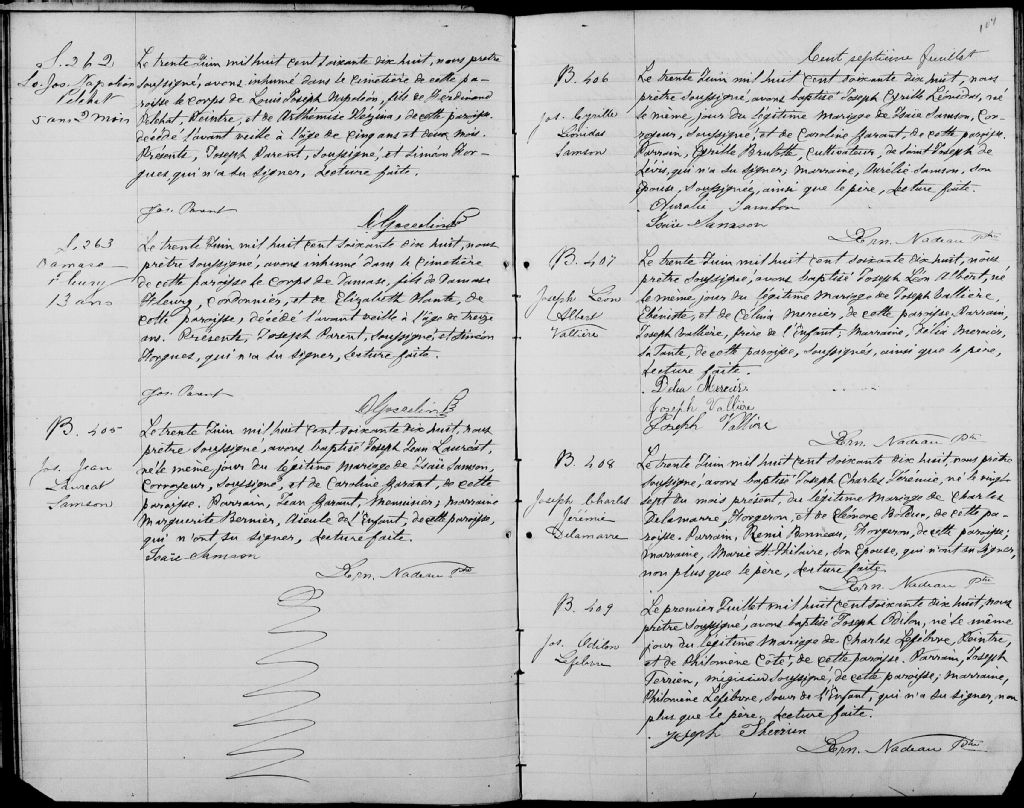 S. 262
Ls. Jos. Napoléon
Pelchat
5 ans 2 mois
Le trente Juin mil huit cent soixante dix huit, nous prêtre
soussigné, avons inhumé dans le cimetière de cette pa-
roisse le corps de Louis Joseph Napoléon, fils de Ferdinand
Pelchat, Peintre, et de Arthémise, de cette paroisse,
décédé l'avant veille à l'âge de cinq ans et deux mois.
Présents, Joseph Parent, soussigné, et Siméon Hor-
gues, qui n'a su signer, Lecture faite.
Jos. Parent
Gosselin
S. 263
Damase
Fleury
13 ans
Le trente Juin mil huit cent soixante dix huit, nous
prêtre soussigné, avons inhumé dans le cimetière
de cette paroisse le corps de Damase, fils de Damase
Fleury, Cordonnier, et de Elizabeth Plante, de
cette paroisse, décédé l'avant veille à l'âge de treize
ans. Présents, Joseph Parent, soussigné, et Siméon
Horgues, qui n'a su signer, Lecture faite.
Jos. Parent
Gosselin
B. 405
Jos. Jean
Lauréat
Samson
Le trente Juin mil huit cent soixante dix huit, nous
prêtre soussigné, avons baptisé Joseph Jean Lauréat,
né le même jour du légitime Mariage de Isaïe Samson,
Corroyeur, soussigné, et de Caroline Garant, de cette
paroisse. Parrain, Jean Garant, Menuisier; marraine
Marguerite Bernier, Aïeule de l'Enfant, de cette paroisse,
qui n'ont su signer, Lecture faite.
Isaïe Samson
Ern. Nadeau Ptre
107
Cent septième feuillet
B. 406
Jos. Cyrille
Léonidas
Samson
Le trente Juin mil huit cent soixante dix huit, nous
prêtre soussigné, avons baptisé Joseph Cyrille Léonidas, né
le même jour du légitime mariage de Isaïe Samson, Cor-
royeur, soussigné, et de Caroline Garant, de cette paroisse.
Parrain, Cyrille Brulotte, cultivateur, de Saint Joseph de
Lévis, qui n'a su signer; marraine, Aurélie Samson, son
épouse, soussignée, ainsi que le père, Lecture faite.
Aurélie Samson
Isaïe Samson
Ern. Nadeau Ptre
B. 407
Joseph Léon
Albert
Vallière
Le trente Juin mil huit cent soixante dix huit, nous
prêtre soussigné, avons baptisé Joseph Léon Albert, né
le même jour du légitime Mariage de Joseph Vallière,
Ebéniste, et de Célina Mercier, de cette paroisse. Parrain,
Joseph Vallière, frère de l'Enfant; Marraine, Délia Mercier,
sa Tante, de cette paroisse, soussignés, ainsi que le père,
Lecture faite.
Délia Mercier
Joseph Vallière
Joseph Vallière
Ern. Nadeau Ptre
B. 408
Joseph Charles
Jérémie
Delamarre
Le trente Juin mil huit cent soixante dix huit, nous prêtre
soussigné, avons baptisé Joseph Charles Jérémie, né le vingt
sept du mois présent, du légitime Mariage de Charles
Delamarre, Forgeron, et de Léonore Bolduc, de cette pa-
roisse. Parrain, Rémi Bonneau, Forgeron, de cette paroisse;
marraine, Marie St. Hilaire, son Epouse, qui n'ont su signer,
non plus que le père, Lecture faite.
Ern. Nadeau Ptre
B. 409
Jos. Odilon
Lefebvre
Le premier Juillet mil huit cent soixante dix huit, nous
prêtre soussigné, avons baptisé Joseph Odilon, né le même
jour du légitime Mariage de Charles Lefebvre, Peintre,
et de Philomène Côté, de cette paroisse. Parrain, Joseph
Terrien, mégissier soussigné, de cette paroisse; marraine,
Philomène Lefebvre, Soeur de l'Enfant, qui n'a su signer, non
plus que le père. Lecture faite.
Joseph Therrien
Ern. Nadeau Ptre